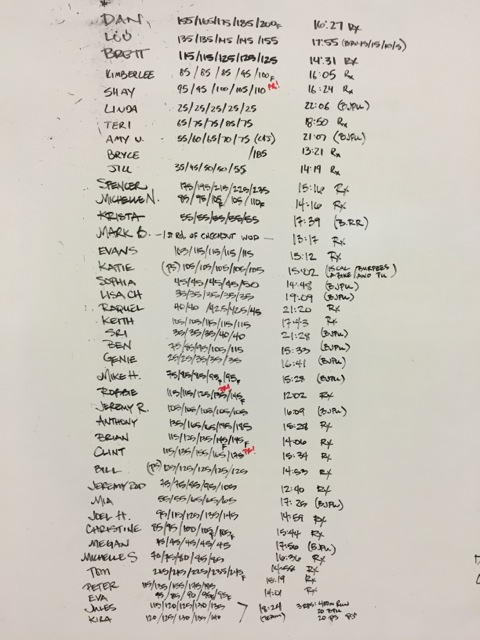 DAN 155/165/175/185/200F 16:27 Rx
135/135/145/145/155 17:55
BRETT 115/115/125/125/125 14:31 Rx
KIMBERLEE 85/85/85/95/100F 16:05 Rx
SHAY 95/95/100/105/110 PR! 16:24 Rx
LINDA 25/25/25/25/25 22:06 (BJPU)
TERI 65/75/75/85/75 18:50 Rx
AMY V. 55/60/65/70/75 21:07 (BJPU)
BRYCE /185 13:21 Rx
JILL 35/45/50/50/55 14:19 Rx
SPENCER 175/195/215/225/235 15:16 Rx
MICHELLE N. 105/110F 14:16 Rx
KRISTA 55/55/55/55/55 17:39 (B.RR)
MARK B. -1st RD. OF CHECKOUT WOD- 13:17 Rx
EVANS 105/115/115/115/115 13:12 Rx
KATIE (PS) 105/105/105/105/105 15:02
SOPHIA 45/45/45/45/50 14:48 (BJPU)
LISA CH 35/35/35/35/35 19:09 (BJPU)
RAQUEL 40/40 /425/425/45 21:20 Rx
KEITH 105/105/115/115/115 17:43 Rx
35/35/35/40/40 21:28 (BJPU)
BEN 75/85/95/105/115 15:33 (BJPU)
GENIE 25/25/35/35/35 16:41 (BJPU)
MIKE H. 75/85/85/95F/95F 15:28 (BJPU)
ROBBIE 115/115/125/135/145F PR! 12:02 Rx
JEREMY R. 105/105/105/105/105 16:09 (BJPU)
ANTHONY 135/165/165/185 15:28 Rx
BRIAN 115/125/135/145F/145F 14:06 Rx
CLINT 115/135/155/165/175 PR! 15:34 Rx
BILL (PS) 105/125/125/125/125 14:53 Rx
JEREMY ROD 75/75/85/95/105 12:40 Rx
MIA 55/55/65/65/65 17:25 (BJPU)
JOEL H. 95/115/125/135/145 14:59 Rx
CHRISTINE 85/95/100/105F/105F 15:44 Rx
MEGAN 45/45/45/45/45 17:56 (BJPU)
MICHELLE S 16:36 Rx
TOM 205/215/225/235/245F 14:58 Rx
PETER 115/135/155/175/185 15:19 Rx
EVA 14:01 Rx
JULES 115/120/125/130/135 18:24 3 RDS: 400m RUN
KIRA 120/125/130/135/140 (TEAM)